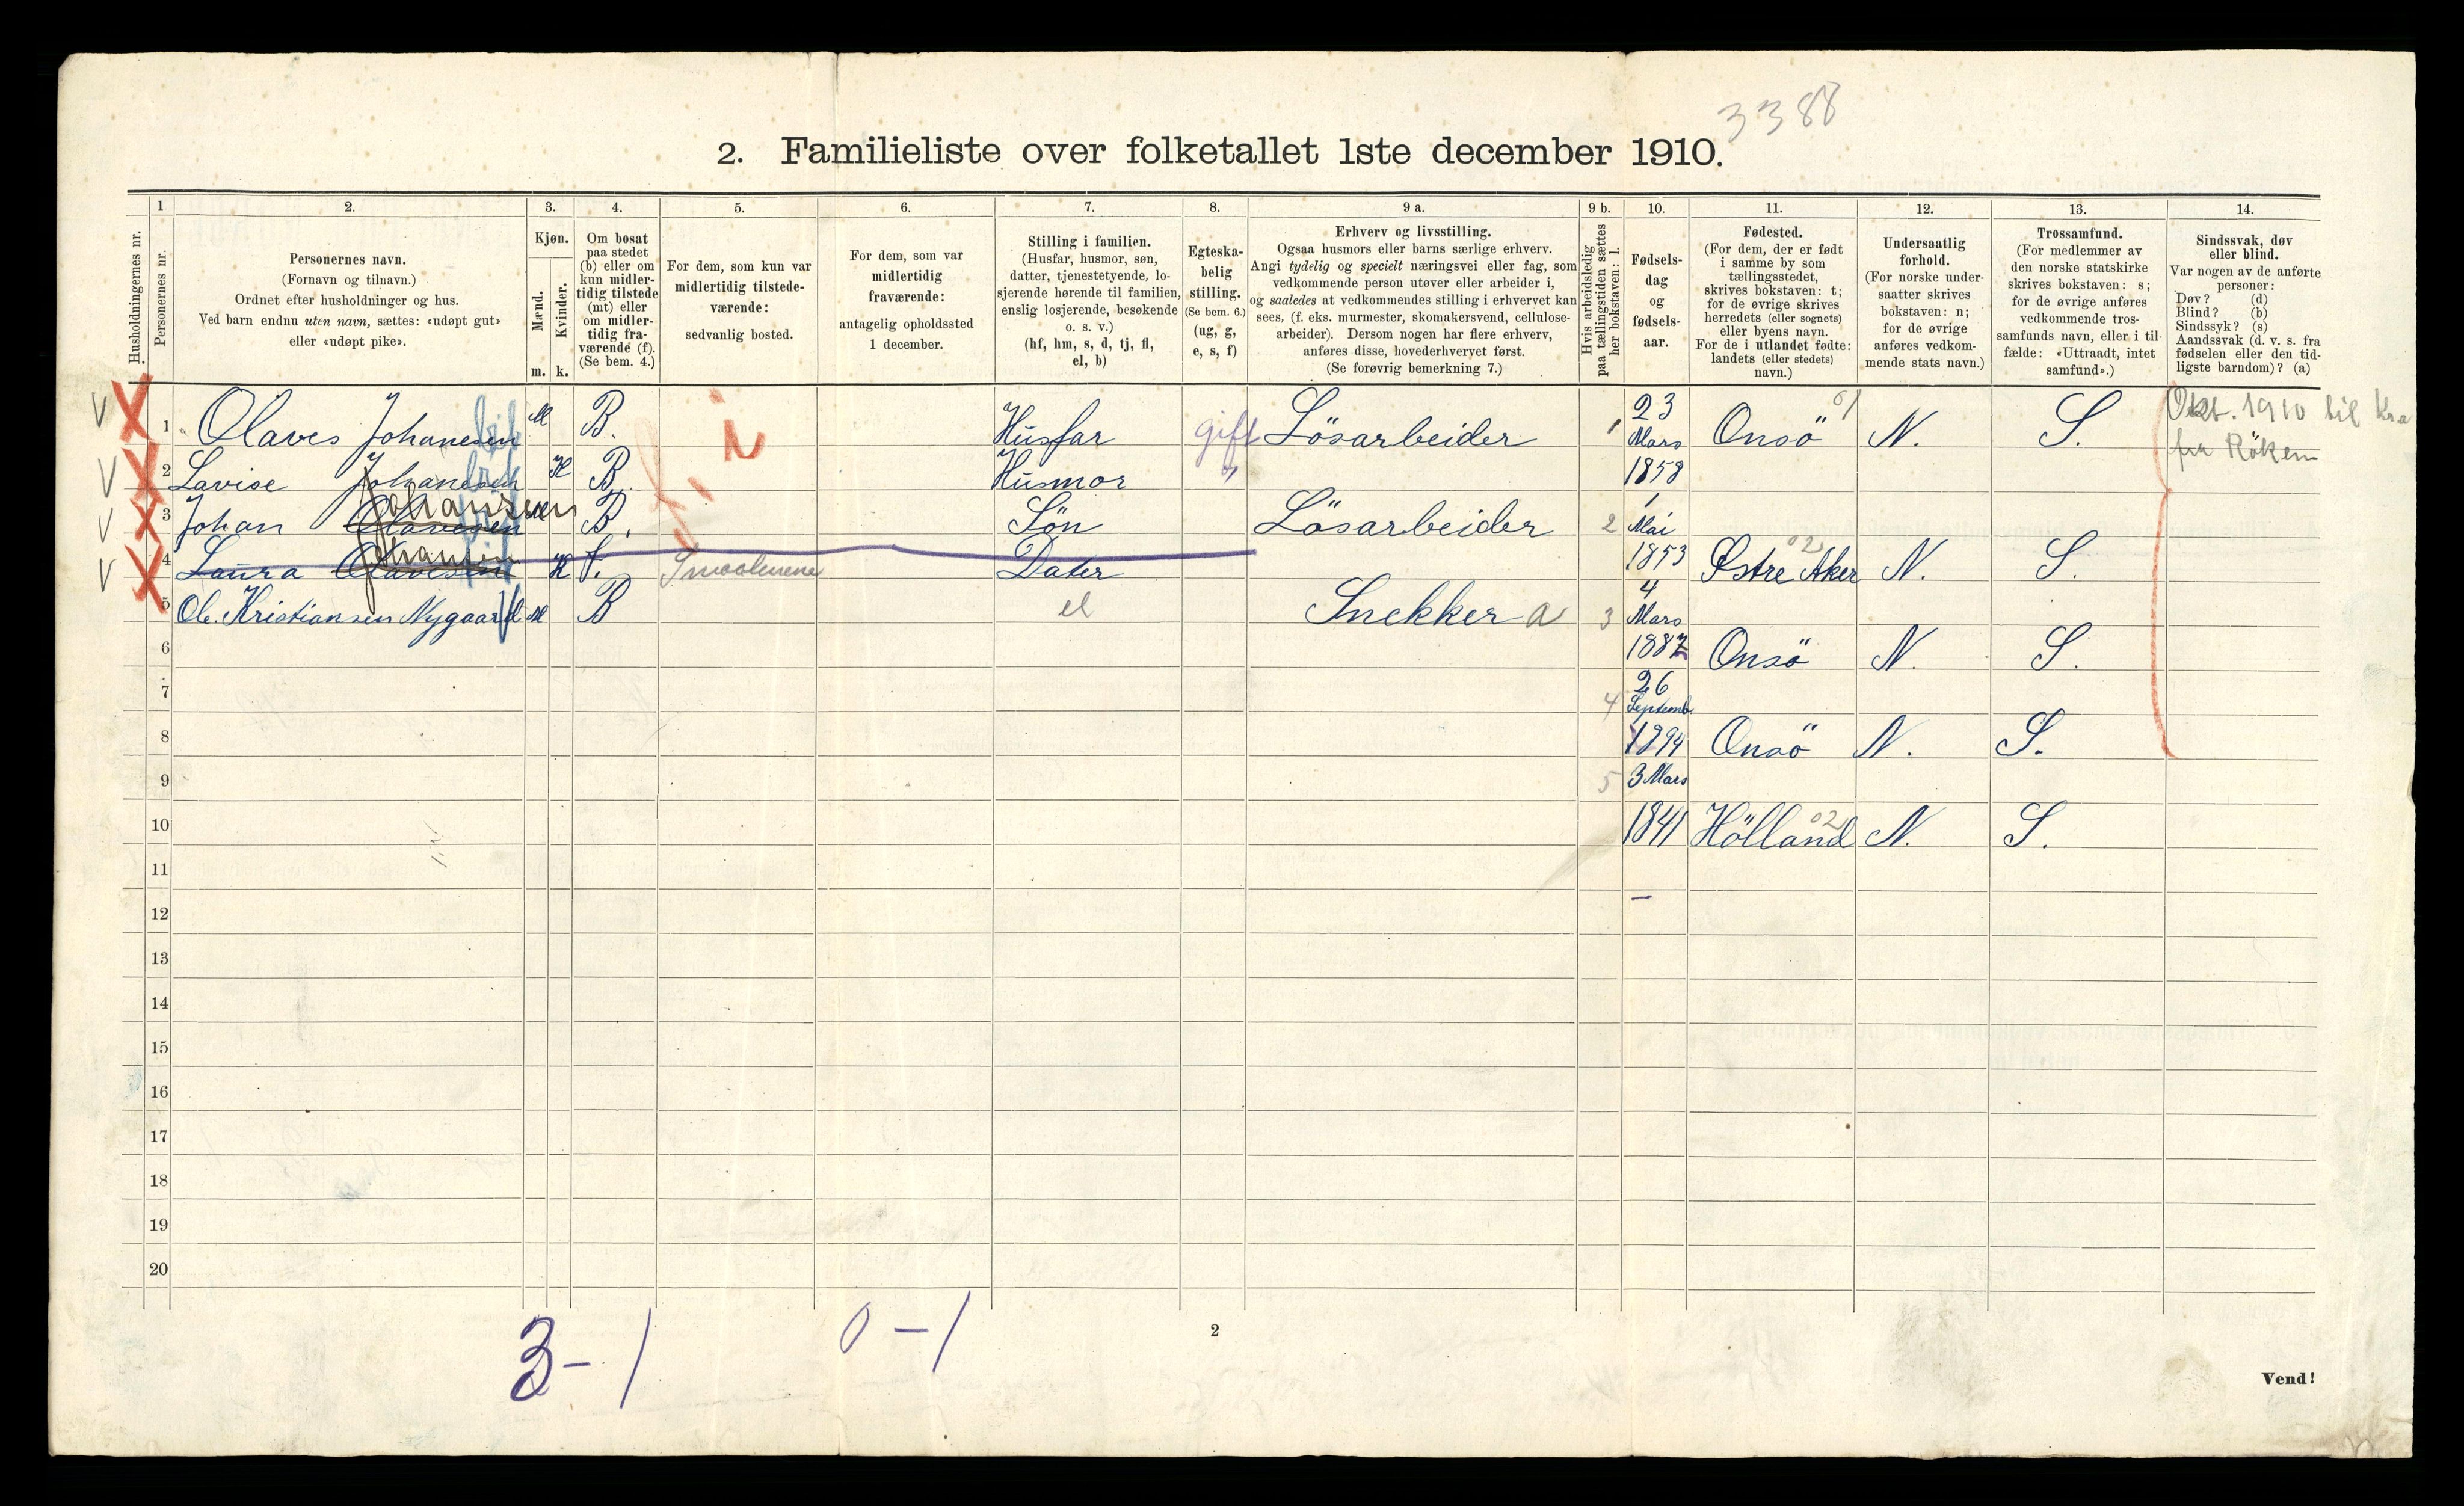 3388
2. Familieliste over folketallet 1ste december 1910.
Husholdningernes nr.
1
Personernes nr.
2.
Personernes navn.
(Fornavn og tilnavn.)
Ordnet efter husholdninger og hus.
Ved barn endnu uten navn, sættes: «udøpt gut»
eller «udøpt pike».
3.
Kjøn.
Mænd.
Kvinder.
m. k.
4.
Om bosat
paa stedet
(b) eller om
kun midler-
tidig tilstede
(mt) eller
om midler-
tidig fra-
værende (f).
(Se bem. 4.)
5.
For dem, som kun var
midlertidig tilstede-
værende:
sedvanlig bosted.
6.
For dem, som var
midlertidig
fraværende:
antagelig opholdssted
1 december.
7.
Stilling i familien.
(Husfar, husmor, søn,
datter, tjenestetyende, lo-
sjerende hørende til familien,
enslig losjerende, besøkende
o. s. v.)
(hf, hm, s, d, tj, fl,
el, b)
8.
Egteska-
belig
stilling.
(Se bem. 6.)
(ug, g,
e, s, f)
9 a.
Erhverv og livsstilling.
Ogsaa husmors eller barns særlige erhverv.
Angi tydelig og specielt næringsvei eller fag, som
vedkommende person utøver eller arbeider i,
og saaledes at vedkommendes stilling i erhvervet kan
sees, (f. eks. murmester, skomakersvend, cellulose-
arbeider). Dersom nogen har flere erhverv,
anføres disse, hovederhvervet først.
(Se forøvrig bemerkning 7.)
9 b.
Hvis arbeidsledig
paa tællingstiden sættes
her bokstaven: l.
10.
Fødsels-
dag
og
fødsels-
aar.
11.
Fødested.
(For dem, der er født
i samme by som
tællingsstedet,
skrives bokstaven: t;
for de øvrige skrives
herredets (eller sognets)
eller byens navn.
For de i utlandet fødte:
landets (eller stedets)
navn.)
12.
Undersaatlig
forhold.
(For norske under-
saatter skrives
bokstaven: n;
for de øvrige
anføres vedkom-
mende stats navn.)
13.
Trossamfund.
(For medlemmer av
den norske statskirke
skrives bokstaven: s;
for de øvrige anføres
vedkommende tros-
samfunds navn, eller i til-
fælde: «Uttraadt, intet
samfund».)
14.
Sindssvak, døv
eller blind.
Var nogen av de anførte
personer:
Døv? (d)
Blind? (b)
Sindssyk? (s)
Aandssvak (d. v. s. fra
fødselen eller den tid-
ligste barndom)? (a)
V X 1 Olaves Johanesen M B. Husfar gift Lösarbeider 1 23 Mars Onsö 01 N. S. Okt. 1910 til Kra
fra Röken
V X 2 Lavise Johanesen K B. Husmor " 1858
V X 3 Johan Olavesen Johansen M B. Sön Lösarbeider 2 1 Mai
V X 4 Laura Olavesen Johansen K f. Smaalenene Dater 1853 Østre Aker 02 N. S.
5 Ole. Kristiansen Nygaard M B el Snekker a 3 4 Mars
6 1887 Onsö N. S.
7 4 26 Septemb
8 1894 Onsö N. S.
9 5 3 Mars
10 1841 Hölland 02 N. S.
11
12
13
14
15
16
17
18
19
20
3 - 1
0 - 1
2
Vend!